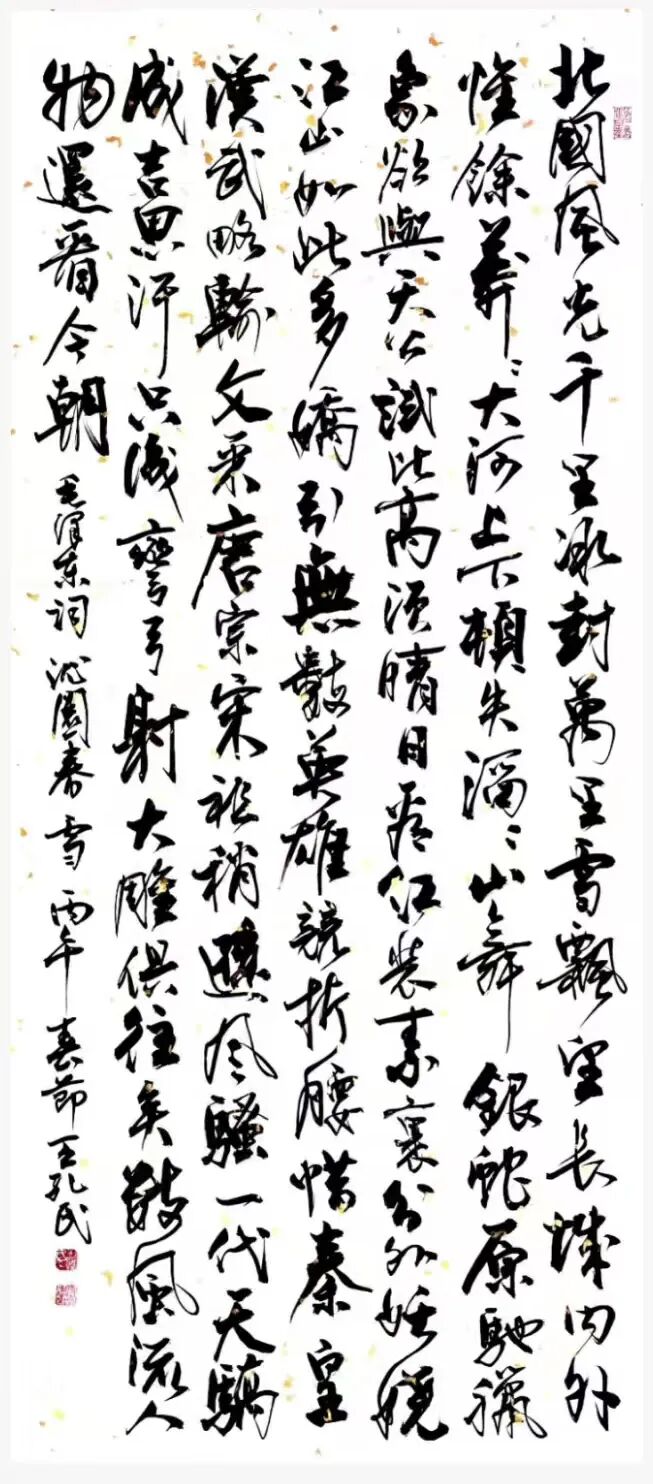 北國風光千里冰封萬里雪飄望長城內外
惟餘莽〻大河上下頓失滔〻山舞銀蛇原馳獵
象欲與天公試比高須晴日看紅裝素裹分外妖嬈
江山如此多嬌引無數英雄競折腰惜秦皇
漢武略輸文采唐宗宋祖稍遜風騷一代天驕
成吉思汗只識彎弓射大雕俱往矣數風流人
物還看今朝 毛澤東詞 沁園春 雪 丙午春節 王孔民